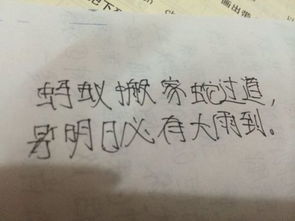 蚂蚁搬家蛇过道，
明日必有大雨到。